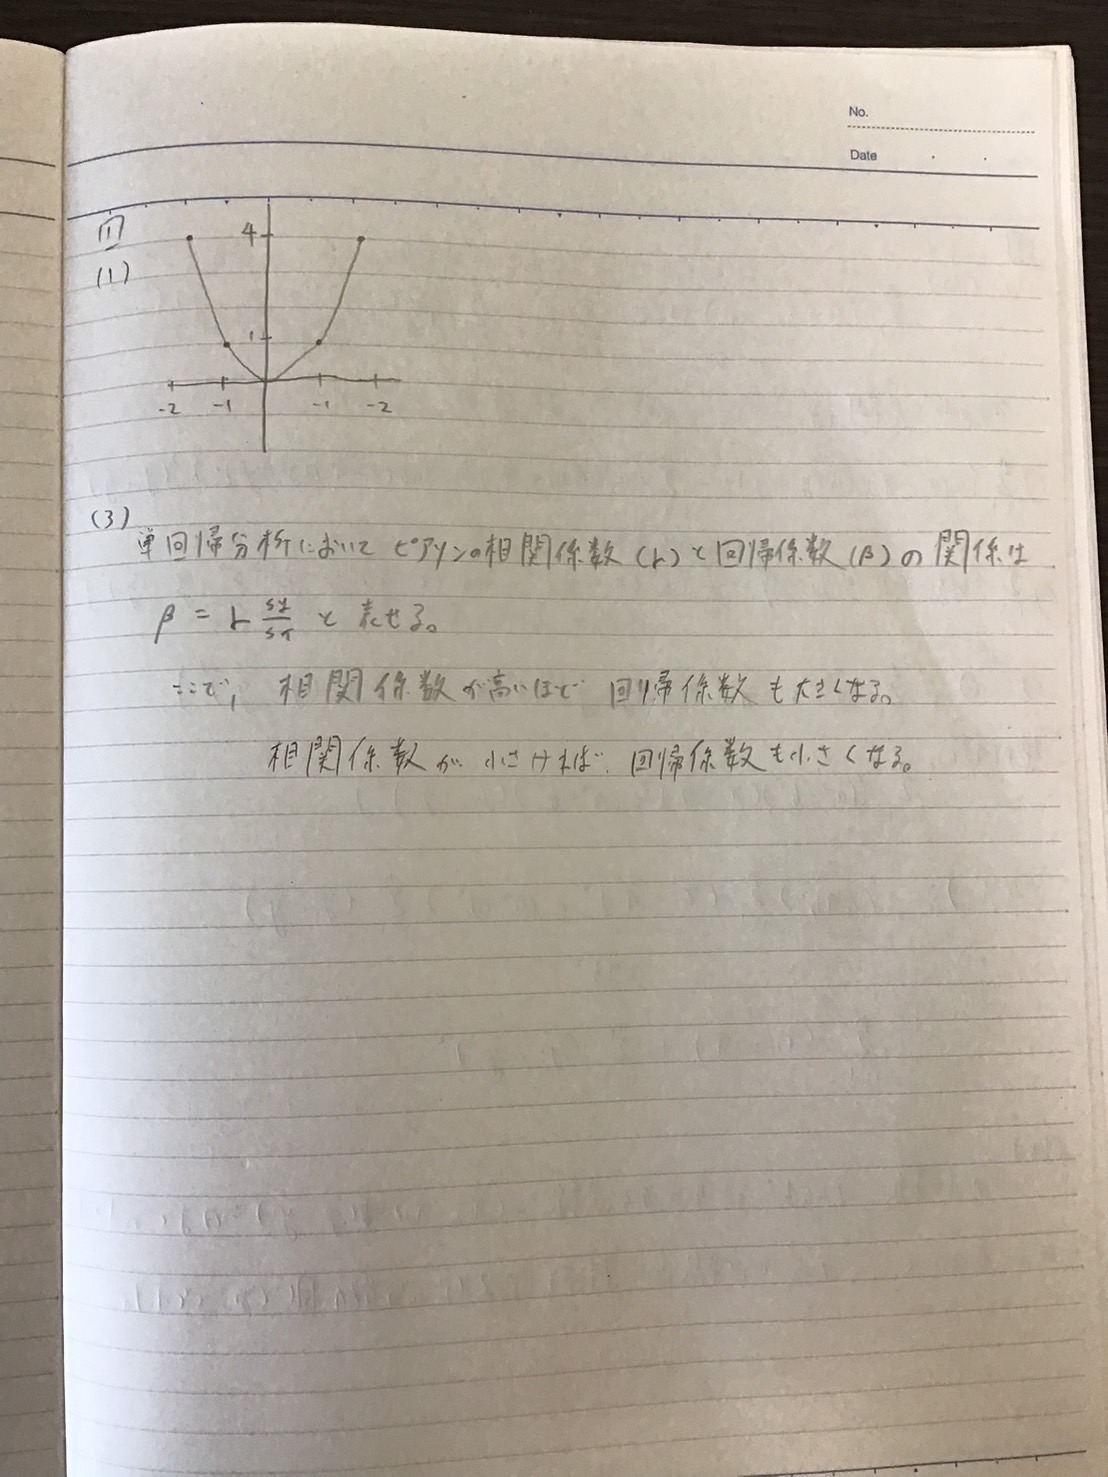 No.
Date
1
(1)
4
1
-2 -1 -1 -2
(3)
単回帰分析において ピアソンの相関係数(r)と回帰係数(β)の関係は
β = r sy/sx と表せる。
ここで, 相関係数が高いほど 回帰係数も大きくなる。
相関係数が 小さければ 回帰係数も小さくなる。